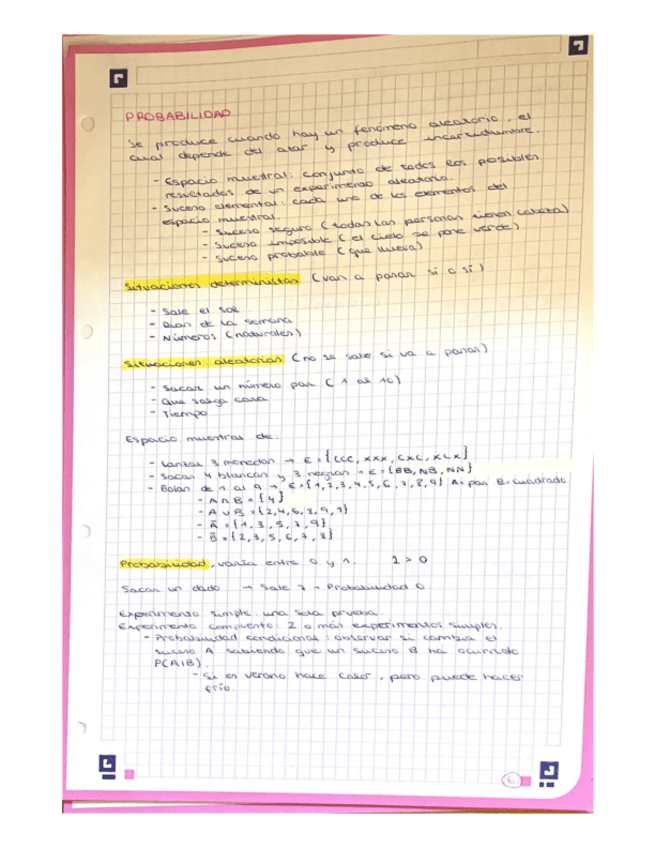 PROBABILIDAD
Se produce cuando hay un fenómeno aleatorio, el
cual depende del azar y produce incertidumbre.
- Espacio muestral: conjunto de todos los posibles
resultados de un experimento aleatorio.
- Suceso elemental: cada uno de los elementos del
espacio muestral.
- Suceso seguro (todas las personas tienen cabeza)
- Suceso imposible (el cielo se pone verde)
- Suceso probable (que llueva)
Situaciones deterministas (van a pasar sí o sí)
- Sale el sol
- Días de la semana
- Números (naturales)
Situaciones aleatorias (no se sabe si va a pasar)
- Sacar un número par (1 al 10)
- Que salga cara
- Tiempo
Espacio muestral de:
- Lanzar 3 monedas → E = {CCC, XXX, CXC, XCX}
- Sacar 4 blancas y 3 negras → E = {BB, NB, NN}
- Bolas de 1 al 9 → E = {1,2,3,4,5,6,7,8,9} A = par B = cuadrado
- A ∩ B = {4}
- A ∪ B = {2,4,6,8,9,1}
- Ā = {1,3,5,7,9}
- B̄ = {2,3,5,6,7,8}
Probabilidad, varía entre 0 y 1. 1 > 0
Sacar un dado → Sale 7 → Probabilidad 0
Experimento simple: una sola prueba.
Experimento compuesto: 2 o más experimentos simples.
- Probabilidad condicional: observar si cambia el
suceso A sabiendo que un suceso B ha ocurrido
P(A|B).
- Si es verano hace calor, pero puede hacer
frío.
6